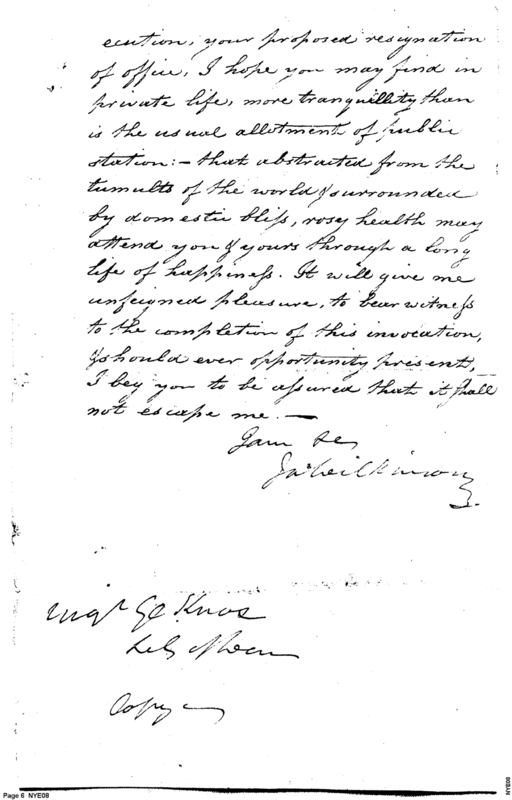 ecution, your proposed resignation
of office, I hope you may find in
private life, more tranquillity than
is the usual allotment of public
station:— that abstracted from the
tumults of the world & surrounded
by domestic bliss, rosy health may
attend you & yours through a long
life of happiness. It will give me
unfeigned pleasure, to bear witness
to the completion of this invocation,
& should ever opportunity present,
I beg you to be assured that it shall
not escape me.—
I am &c
Ja Wilkinson
Majr Gl Knox
Secy of War
Copy
Page 6 NYE08
NYE08